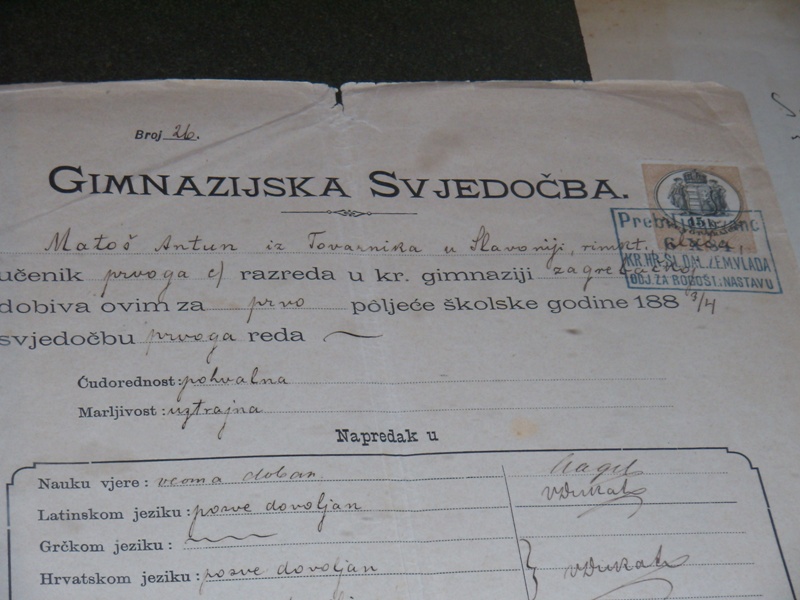 Broj 26.
GIMNAZIJSKA SVJEDOČBA.
Matoš Antun iz Tovarnika u Slavoniji, rimkt.
učenik prvoga c) razreda u kr. gimnaziji zagrebačkoj
dobiva ovim za prvo póljeće školske godine 188 3/4
svjedočbu prvoga reda
Prebiljegovano
KR. HR. SL. DM. ZEM. VLADA
ODJ. ZA BOGOŠT. I NASTAVU
Ćudorednost: pohvalna
Marljivost: uztrajna
Napredak u
Nauku vjere: veoma dobar
Latinskom jeziku: posve dovoljan
Grčkom jeziku:
Hrvatskom jeziku: posve dovoljan